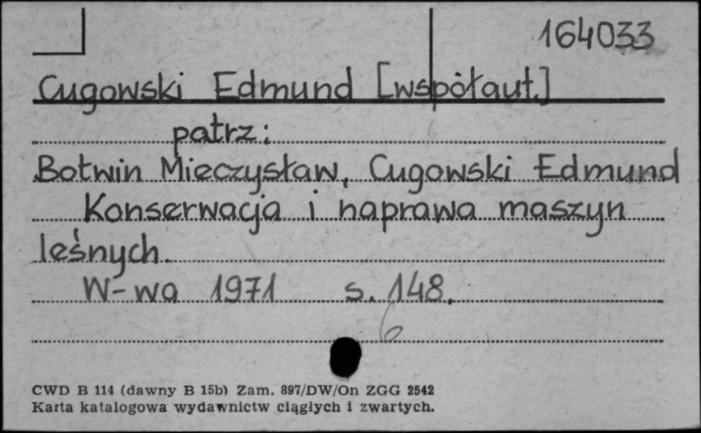 164033
Cugowski Edmund [współaut.]
patrz:
Botwin Mieczysław, Cugowski Edmund
Konserwacja i naprawa maszyn
leśnych.
W-wa 1971 s. 148.
6
CWD B 114 (dawny B 15b) Zam. 897/DW/On ZGG 2542
Karta katalogowa wydawnictw ciągłych i zwartych.